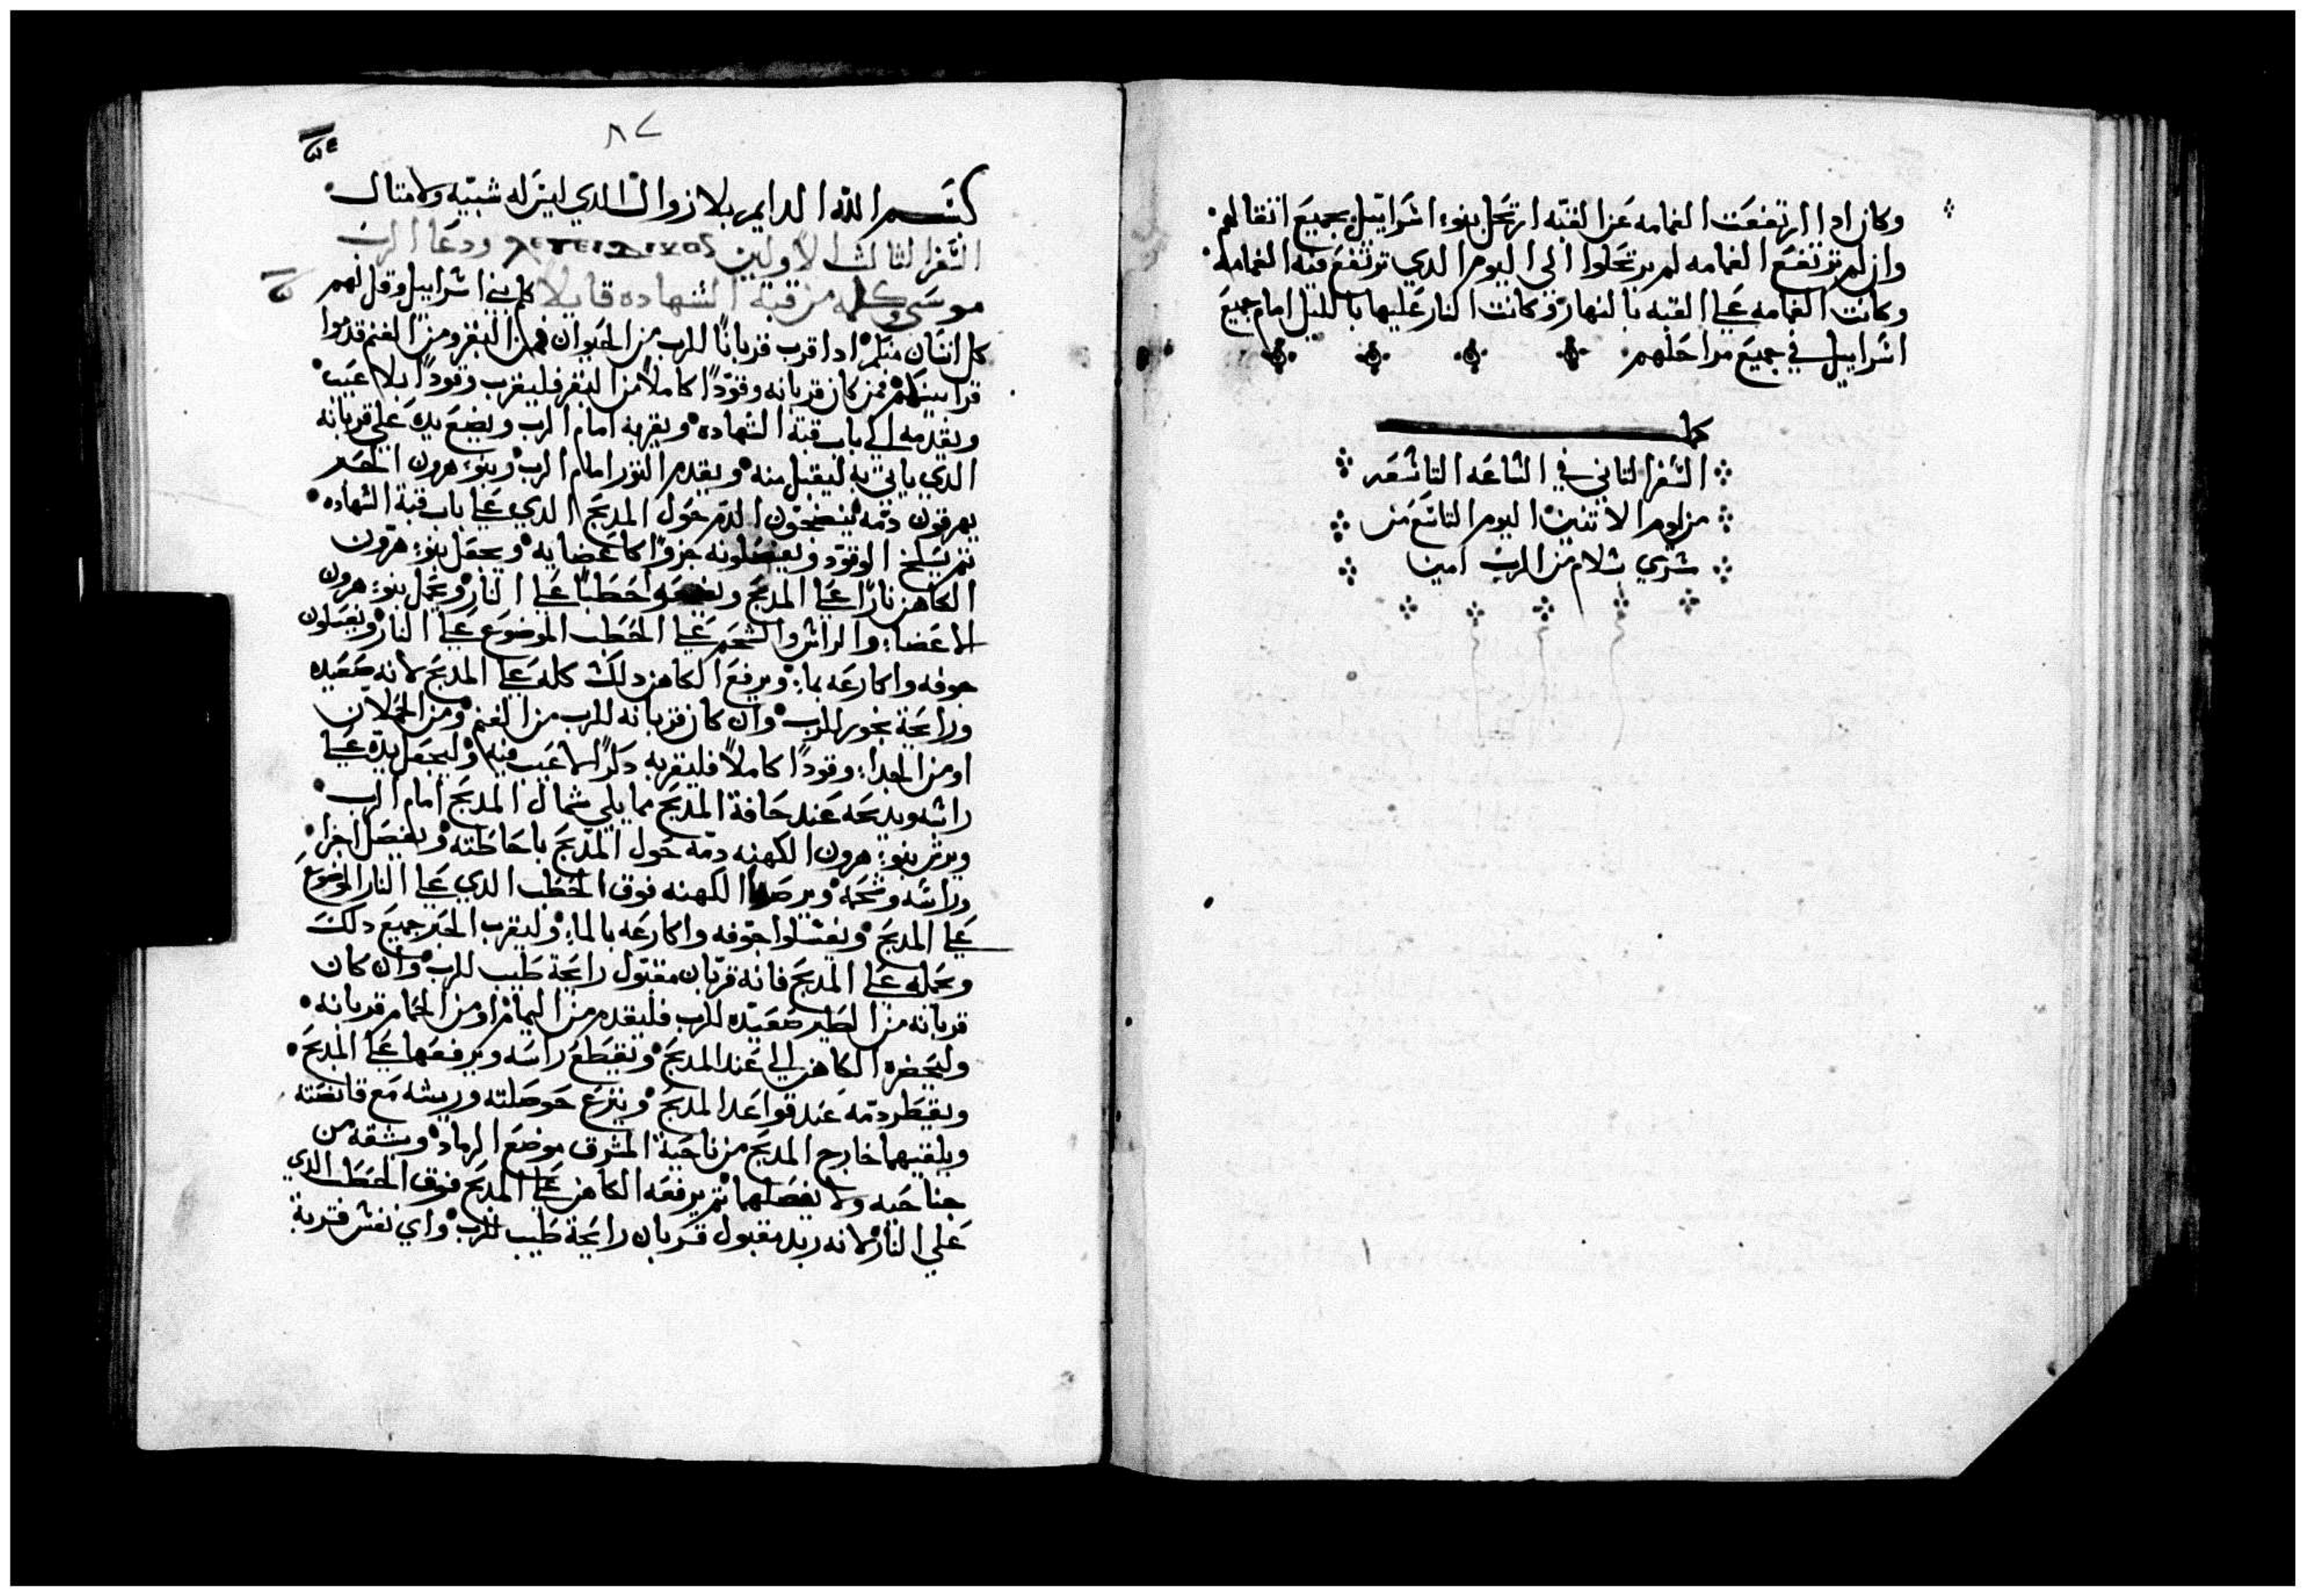 وكان ادا ارتفعت الغمامه عن القبه ارتحل بنوا اسراييل بجميع اتقالهم
وان لم ترتفع الغمامه لم يرتحلوا الي اليوم الدي ترتفع فيه الغمامه
وكانت الغمامه علي القبه بالنهار وكانت النار عليها بالليل امام جميع
اسراييل في جميع مراحلهم
كمل
السفر التاني في الساعه التاسعه
من يوم الاتنين اليوم التاسع من
سلام من الرب امين
٨٧
بسم الله الدايم بلا زوال الدي ليس له شبيه ولا متال
السفر التالت الاولين ودعا الرب
موسي وكلمه من قبة الشهاده قايلا كلم بني اسراييل وقل لهم
كل انسان منكم ادا قرب قربانا للرب من الحيوان فمن البقر ومن الغنم قدموا
قرابينكم فمن كان قربانه وقودا كاملا من البقر فليقرب وقودا بلا عيب
ويقدمه الي باب قبة الشهاده ويقربه امام الرب ويضع يده علي قربانه
الدي ياتي به ليقبل منه ويقدم التور امام الرب وبنوا هرون الحبر
يهرقون دمه ينضحون الدم حول المدبح الدي علي باب قبة الشهاده
تم يسلخ الوقود ويفصلونه جزوا كاعضايه ويجعل بنوا هرون
الكاهن نارا علي المدبح حطبا علي النار ويجعل بنوا هرون
الاعضا والراس والشحم علي الحطب الموضوع علي النار ويغسلون
جوفه واكارعه بما ويرفع الكاهن دلك كله علي المدبح لانه صعيده
ورايحة بخور للرب وان كان قربانه للرب من الغنم ومن الحملان
او من الجدا وقودا كاملا فليقربه دكرا لا عيب فيه وليجعل يده علي
راسه ويدبحه عند حافة المدبح مما يلي شمال المدبح امام الرب
ويرش بنوا هرون الكهنه دمه حول المدبح باحاطته ويفصل اجزا
وراسه وشحمه الكهنه فوق الحطب الدي علي النار الموضوع
علي المدبح ويغسلوا جوفه واكارعه بالما وليقرب الحبر جميع دلك
ويجمله علي المدبح فانه قربان مقبول رايحة طيب للرب وان كان
قربانه من الطير صعيده للرب فليقدم من اليمام او من الحمام قربانه
وليحضره الكاهن الي عند المدبح ويقطع راسه ويرفعها علي المدبح
ويقطر دمه عند قواعد المدبح وينزع حوصلته وريشه مع قانصته
ويلقيهما خارج المدبح من ناحية المشرق موضع الرماد ويشقه من
جناحيه ولا يفصلهما تم يرفعه الكاهن علي المدبح فوق الحطب الدي
علي النار لانه مقبول قربان رايحة طيب للرب واي نفس قربة